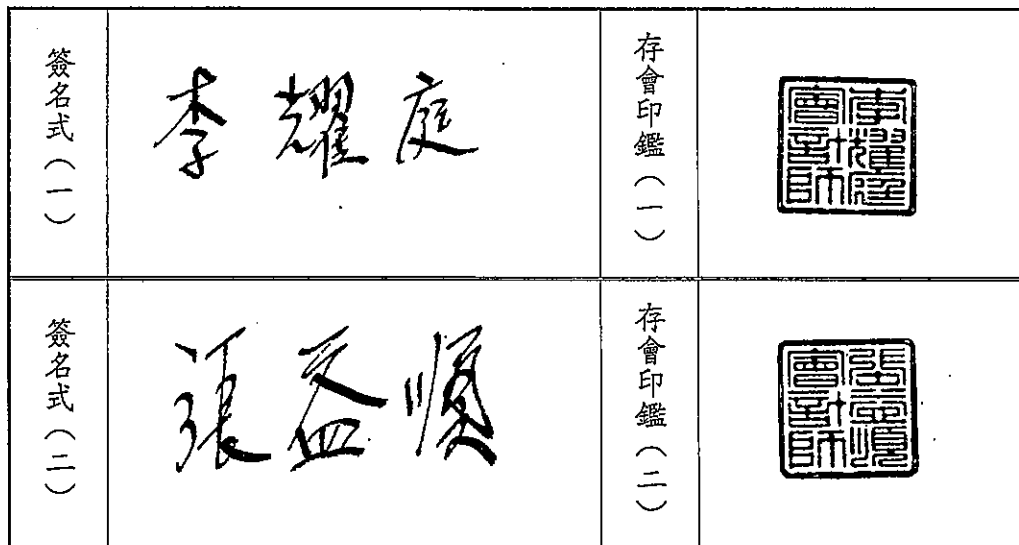 簽名式（一）
李耀庭
存會印鑑（一）
李耀庭會計師
簽名式（二）
張益順
存會印鑑（二）
張益順會計師